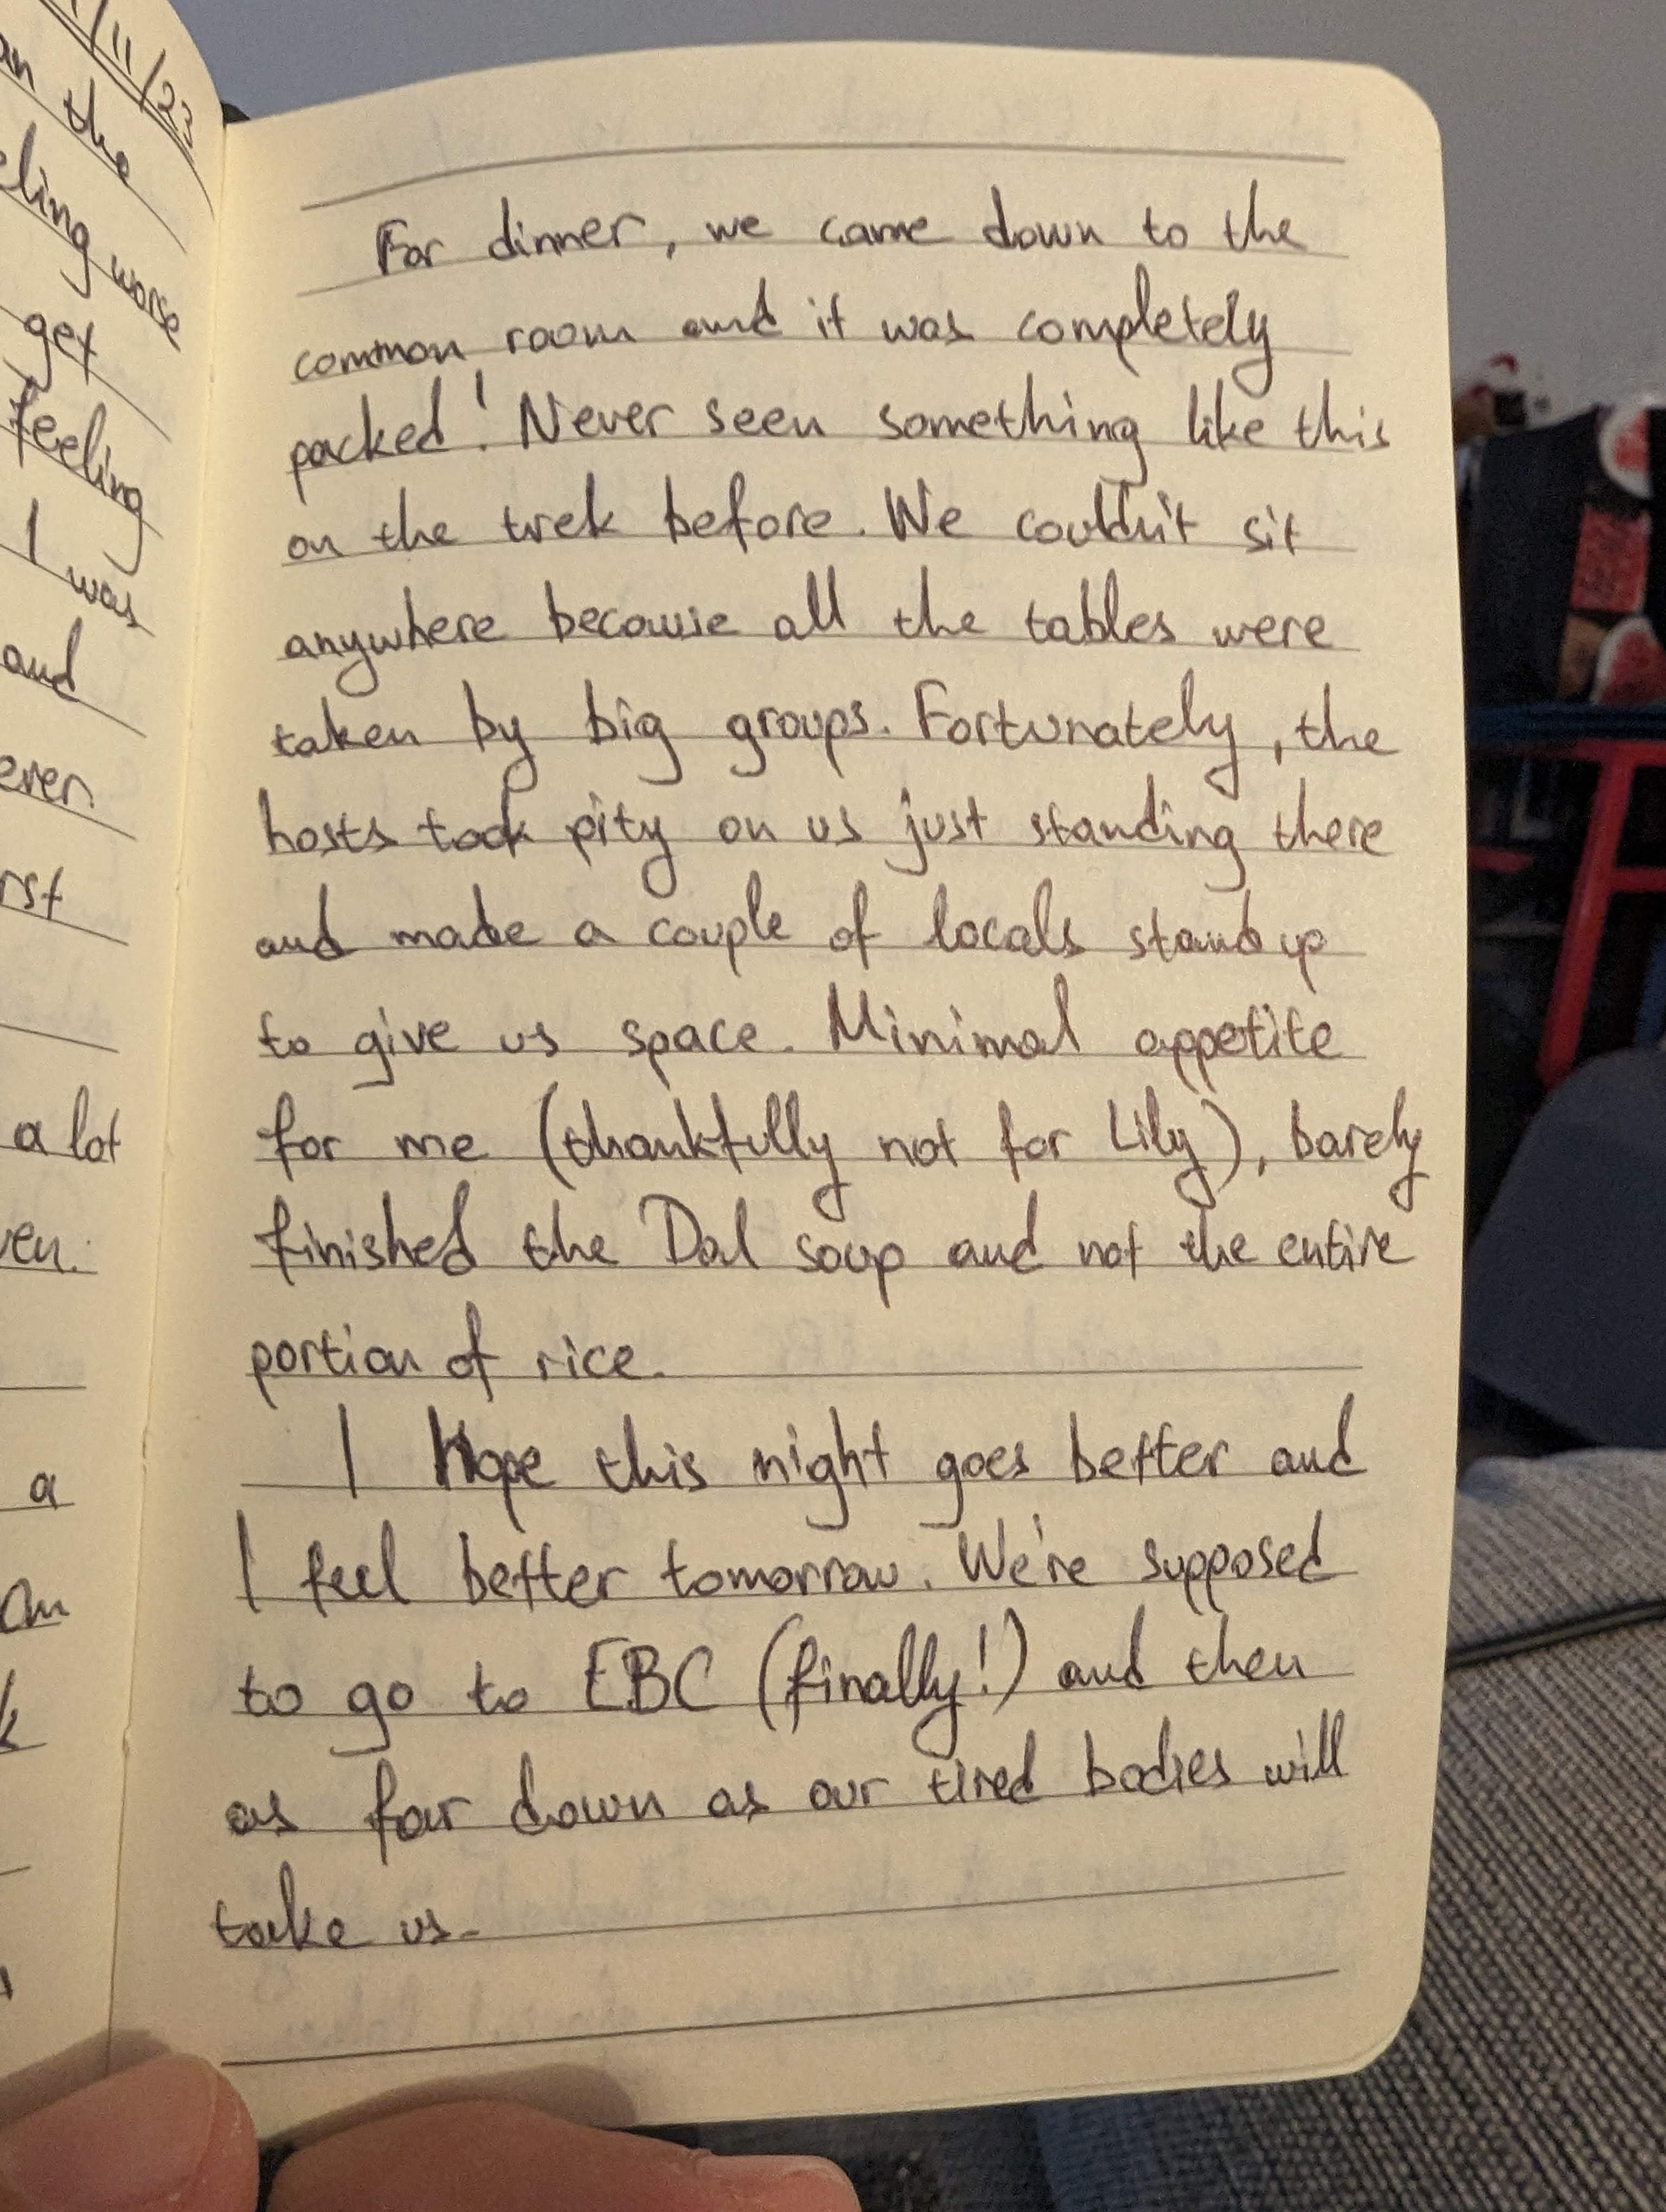 /11/23
the
worse
get
feeling
I was
and
ever
a lot
a
For dinner, we came down to the
common room and it was completely
packed! Never seen something like this
on the trek before. We couldn't sit
anywhere because all the tables were
taken by big groups. Fortunately, the
hosts took pity on us just standing there
and made a couple of locals stand up
to give us space. Minimal appetite
for me (thankfully not for Lily), barely
finished the Dal soup and not the entire
portion of rice.
I Hope this night goes better and
I feel better tomorrow. We're supposed
to go to EBC (finally!) and then
as far down as our tired bodies will
take us.